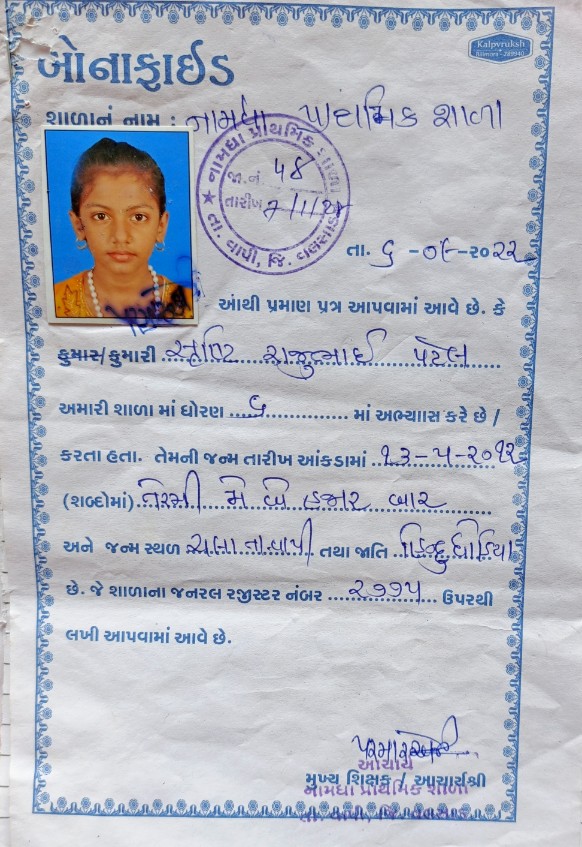 Kalpvruksh
બોનાફાઇડ
શાળાનં નામ : નામધા પ્રાથમિક શાળા
નામધા પ્રાથમિક શાળા
જા.નં. 48
તારીખ 7/1/22
તા. વાપી, જિ. વલસાડ
તા. ૬ -૦૧-૨૦૨૨
આંથી પ્રમાણ પત્ર આપવામાં આવે છે. કે
કુમાર/કુમારી સૃષ્ટિ રાજુભાઈ પટેલ
અમારી શાળા માં ધોરણ ૬ માં અભ્યાાસ કરે છે /
કરતા હતા. તેમની જન્મ તારીખ આંકડામાં ૧૩-૫-૨૦૧૨
(શબ્દોમાં) તેરમી મે બે હજાર બાર
અને જન્મ સ્થળ ચલા તા.વાપી તથા જાતિ હિન્દુ ધોડિયા
છે. જે શાળાના જનરલ રજીસ્ટર નંબર ૨૭૭૫ ઉપરથી
લખી આપવામાં આવે છે.
આચાર્ય
મુખ્ય શિક્ષક / આચાર્યશ્રી
નામધા પ્રાથમિક શાળા
તા. વાપી, જિ. વલસાડ